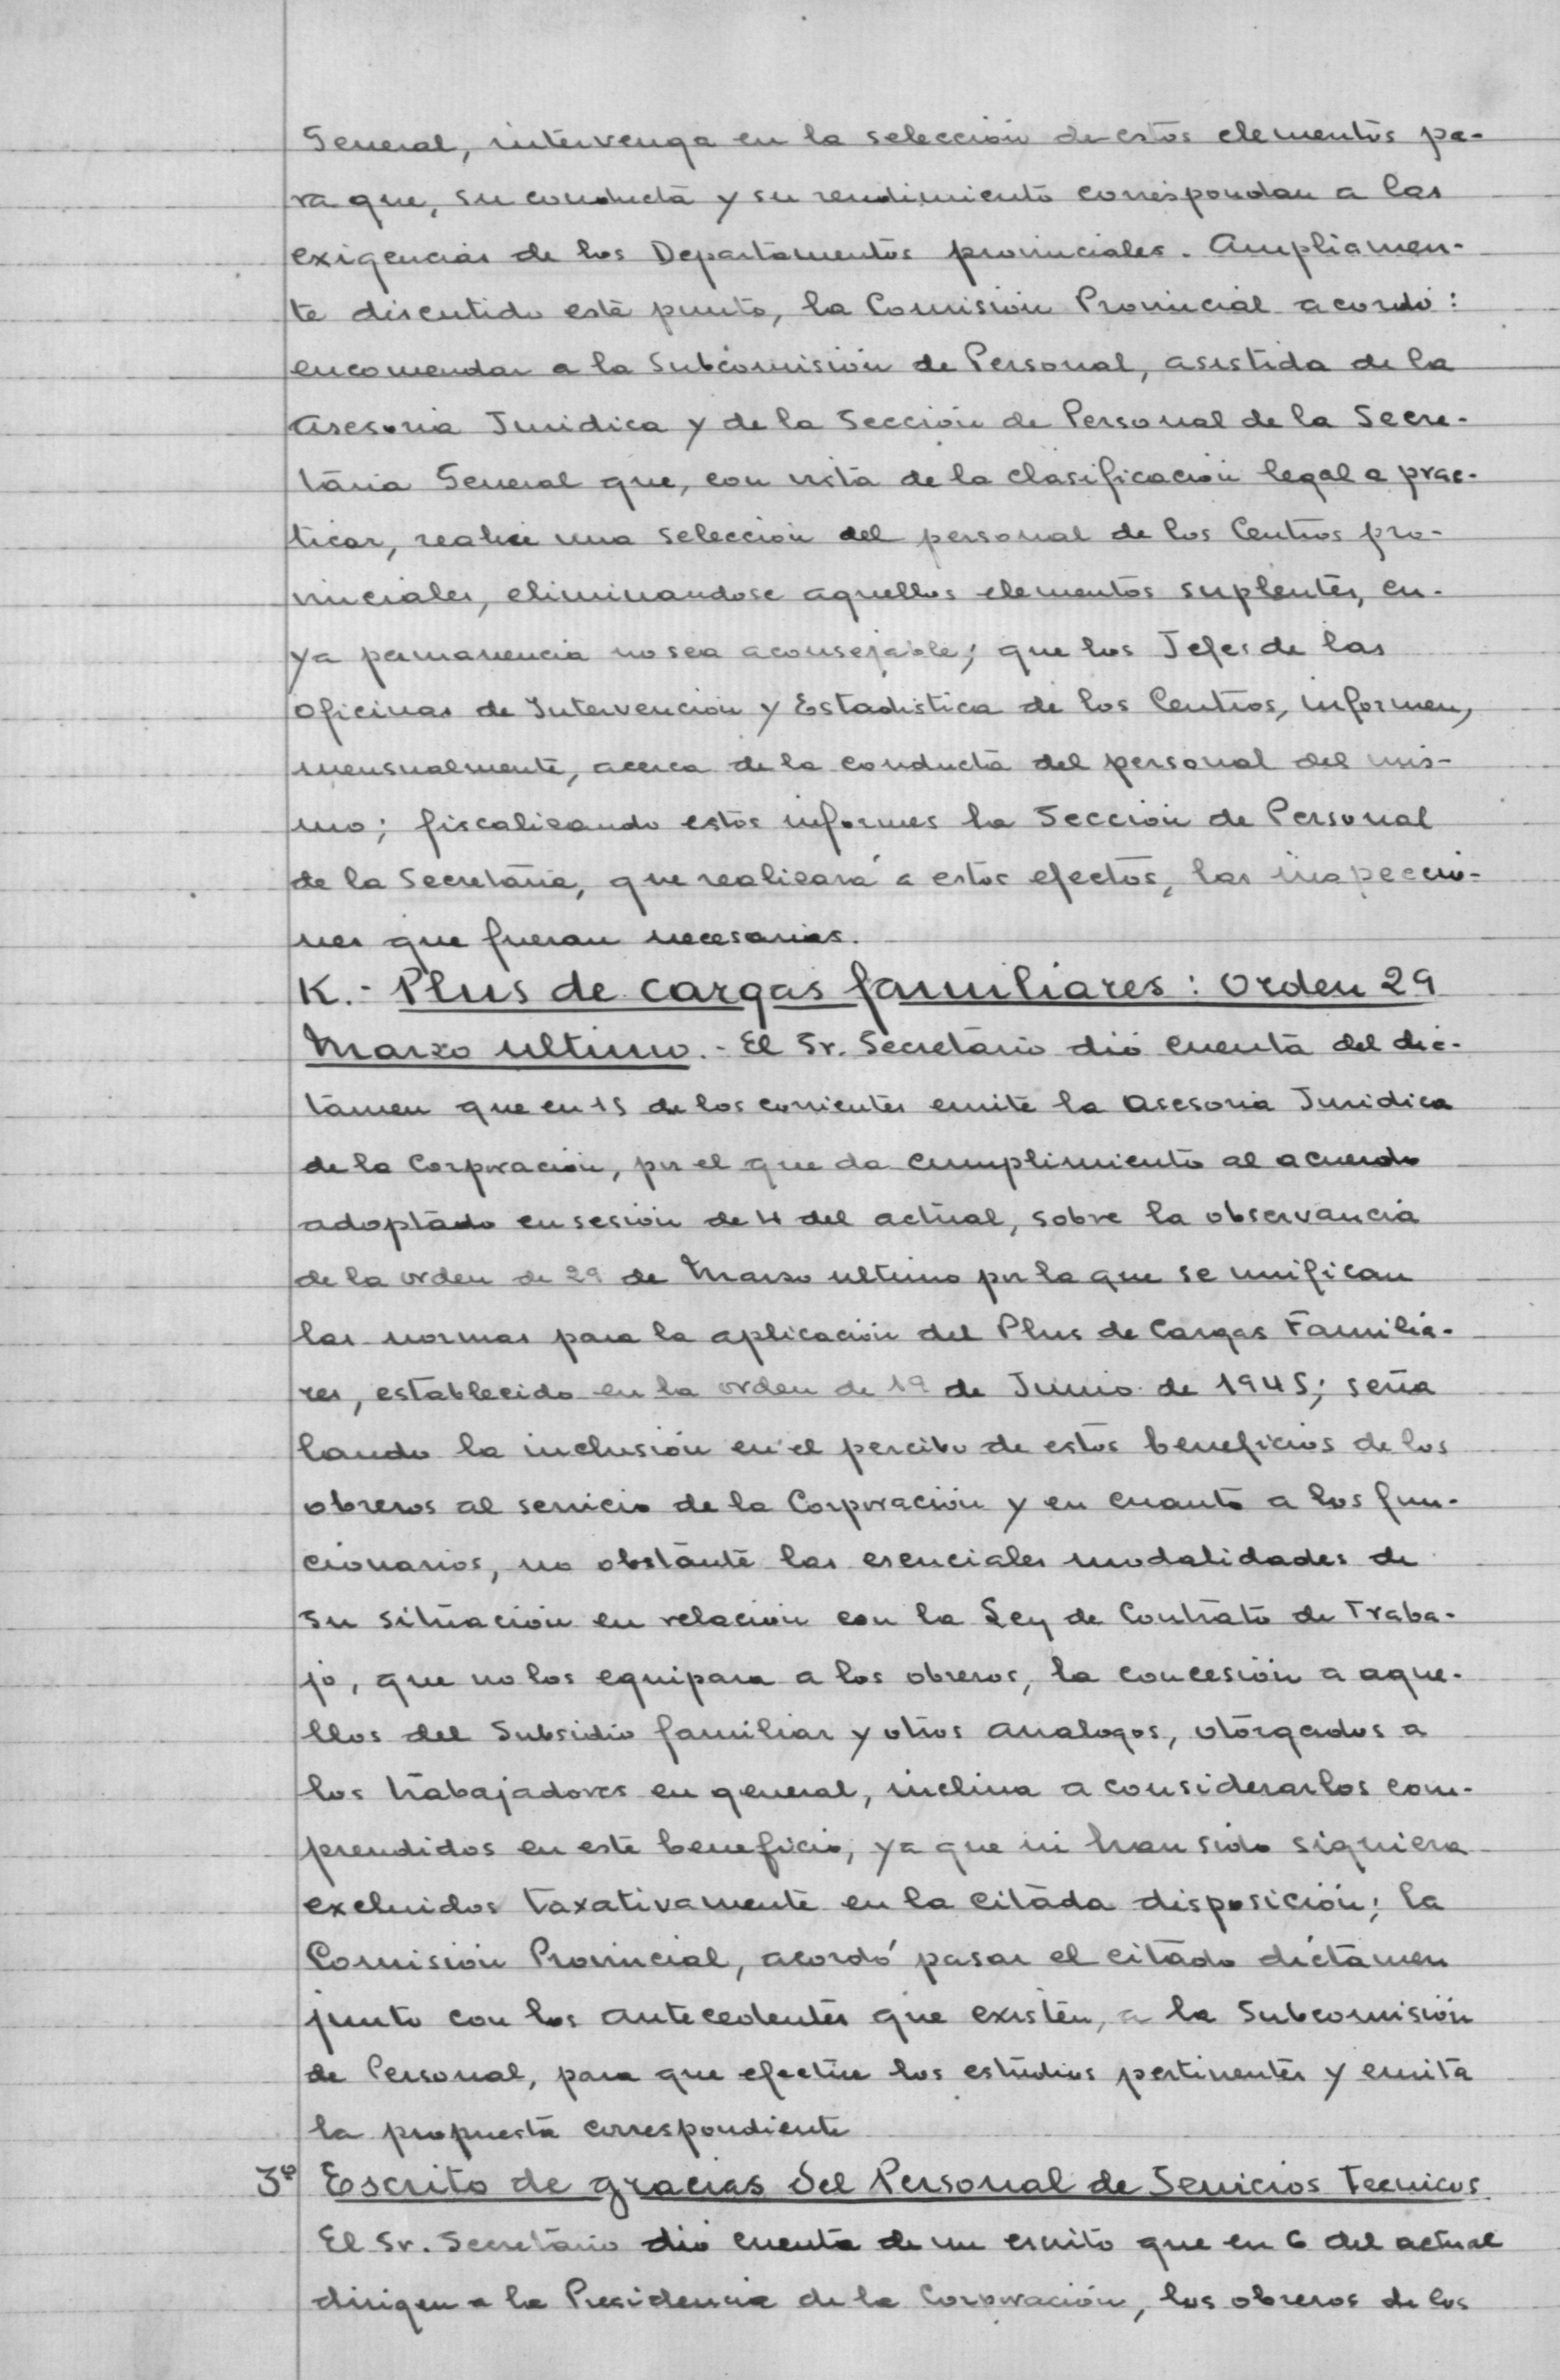 General, intervenga en la selección de estos elementos pa-
ra que, su conducta y su rendimiento correspondan a las
exigencias de los Departamentos provinciales. Ampliamen-
te discutido este punto, la Comisión Provincial acordó:
encomendar a la Subcomisión de Personal, asistida de la
Asesoria Juridica y de la Sección de Personal de la Secre-
taria General que, con vista de la clasificación legal a prac-
ticar, realice una selección del personal de los Centros pro-
vinciales, eliminandose aquellos elementos suplentes, cu-
ya permanencia no sea aconsejable; que los Jefes de las
oficinas de Intervención y Estadistica de los Centros, informen,
mensualmente, acerca de la conducta del personal del mis-
mo; fiscalizando estos informes la Sección de Personal
de la Secretaria, que realizará a estos efectos, las inspeccio-
nes que fueran necesarias.
K.- Plus de cargas familiares: Orden 29
Marzo ultimo.- El Sr. Secretario dió cuenta del dic-
tamen que en 15 de los corrientes emite la Asesoria Juridica
de la Corporación, por el que da cumplimiento al acuerdo
adoptado en sesión de 4 del actual, sobre la observancia
de la orden de 29 de Marzo ultimo por la que se unifican
las normas para la aplicación del Plus de Cargas Familia-
res, establecido en la orden de 19 de Junio de 1945; seña
lando la inclusión en el percibo de estos beneficios de los
obreros al servicio de la Corporación y en cuanto a los fun-
cionarios, no obstante las esenciales modalidades de
su situación en relación con la Ley de Contrato de Traba-
jo, que no los equipara a los obreros, la concesión a aque-
llos del Subsidio familiar y otros analogos, otorgados a
los trabajadores en general, inclina a considerarlos com-
prendidos en este beneficio, ya que ni han sido siquiera
excluidos taxativamente en la citada disposición; la
Comisión Provincial, acordó pasar el citado dictamen
junto con los antecedentes que existen, a la Subcomisión
de Personal, para que efectúe los estudios pertinentes y emita
la propuesta correspondiente
3º Escrito de gracias del Personal de Servicios Tecnicos
El Sr. Secretario dió cuenta de un escrito que en 6 del actual
dirigen a la Presidencia de la Corporación, los obreros de los